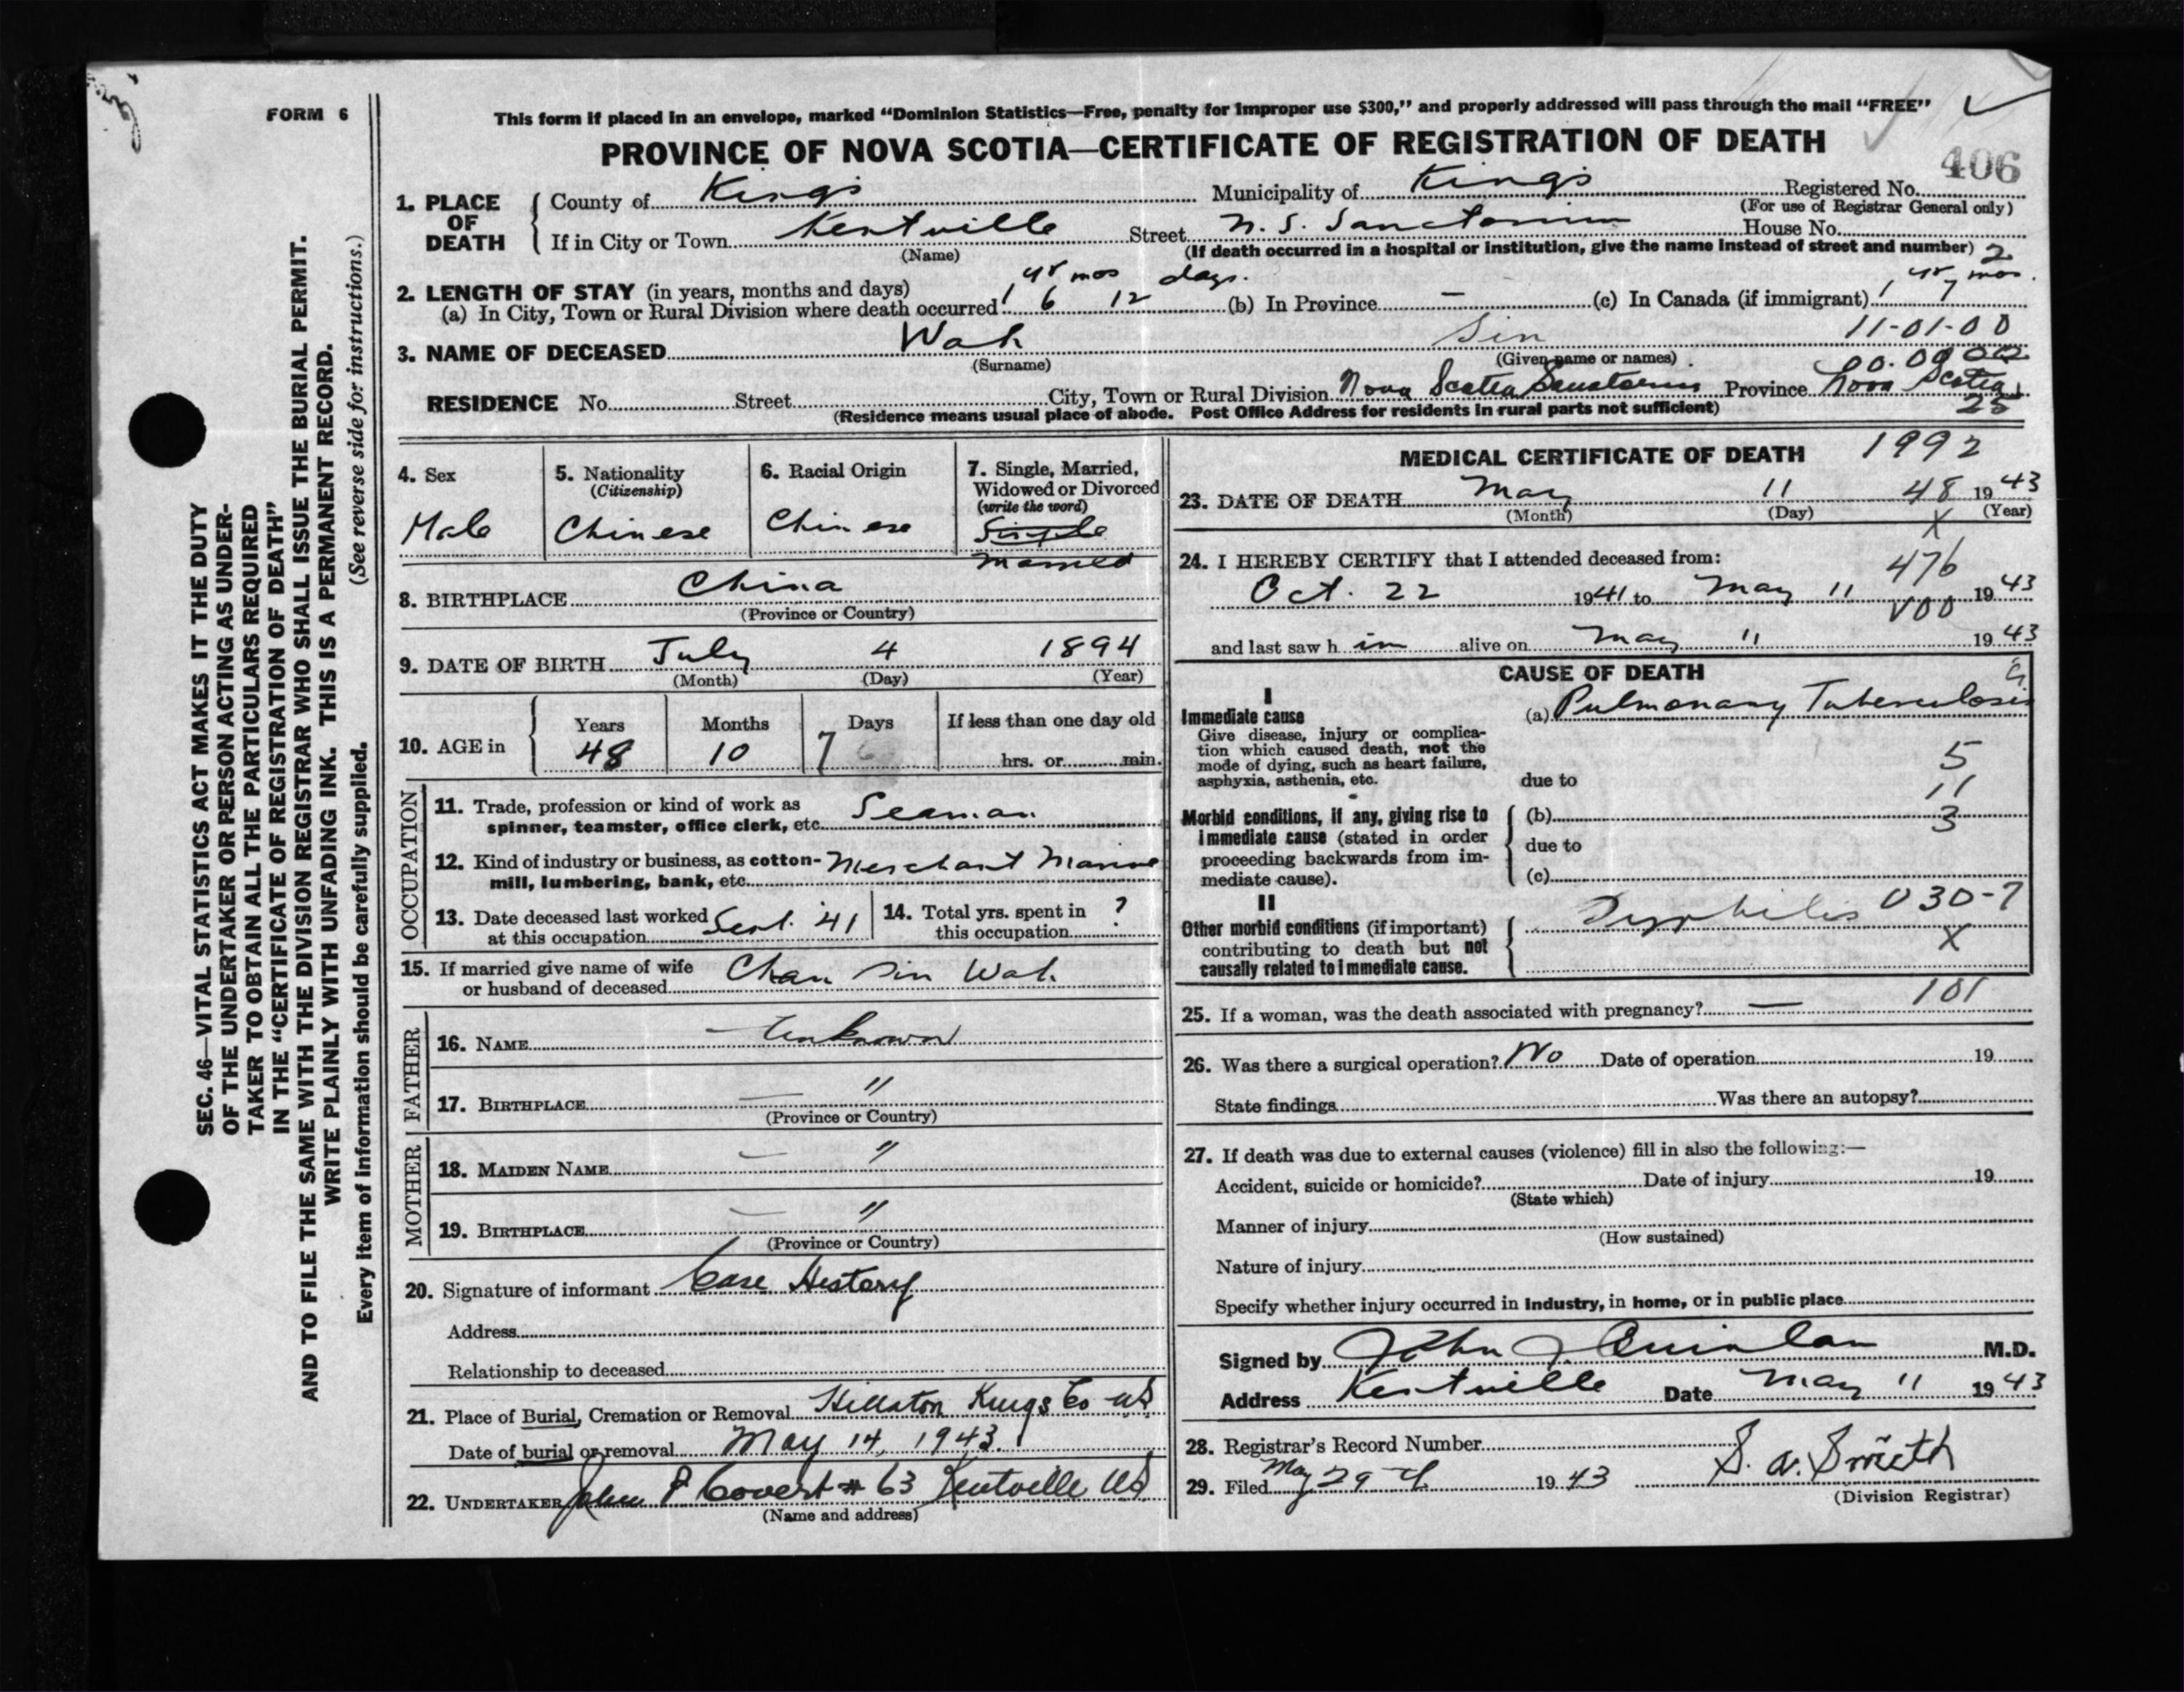 FORM 6
This form if placed in an envelope, marked "Dominion Statistics—Free, penalty for improper use $300," and properly addressed will pass through the mail "FREE"
PROVINCE OF NOVA SCOTIA—CERTIFICATE OF REGISTRATION OF DEATH
406
1. PLACE OF DEATH County of Kings Municipality of Kings Registered No.
(For use of Registrar General only)
If in City or Town Kentville Street N. S. Sanctorium House No.
(Name) (If death occurred in a hospital or institution, give the name instead of street and number) 2
2. LENGTH OF STAY (in years, months and days) yr mos days. yr mos.
(a) In City, Town or Rural Division where death occurred 1 6 12 (b) In Province — (c) In Canada (if immigrant) 1 7
11-01-00
3. NAME OF DECEASED Wah Sin
(Surname) (Given name or names) 00.0000
RESIDENCE No. Street City, Town or Rural Division Nova Scotia Sanatorium Province Nova Scotia
(Residence means usual place of abode. Post Office Address for residents in rural parts not sufficient) 25
4. Sex 5. Nationality (Citizenship) 6. Racial Origin 7. Single, Married, Widowed or Divorced (write the word)
Male Chinese Chinese Single
Married
8. BIRTHPLACE China
(Province or Country)
9. DATE OF BIRTH July 4 1894
(Month) (Day) (Year)
10. AGE in Years Months Days If less than one day old
48 10 7 hrs. or min.
OCCUPATION
11. Trade, profession or kind of work as
spinner, teamster, office clerk, etc. Seaman
12. Kind of industry or business, as cotton-
mill, lumbering, bank, etc. Merchant Marine
13. Date deceased last worked at this occupation Sept. '41 14. Total yrs. spent in this occupation ?
15. If married give name of wife
or husband of deceased Chan Sin Wah
FATHER
16. NAME Unknown
17. BIRTHPLACE — "
(Province or Country)
MOTHER
18. MAIDEN NAME — "
19. BIRTHPLACE — "
(Province or Country)
20. Signature of informant Case History
Address
Relationship to deceased
21. Place of Burial, Cremation or Removal Hillaton Kings Co NS
Date of burial or removal May 14, 1943.
22. UNDERTAKER John P Covert # 63 Kentville NS
(Name and address)
MEDICAL CERTIFICATE OF DEATH 1992
23. DATE OF DEATH May 11 48 1943
(Month) (Day) (Year)
X
24. I HEREBY CERTIFY that I attended deceased from:
476
Oct. 22 1941 to May 11 1943
V00
and last saw h im alive on May 11 1943
CAUSE OF DEATH
I
Immediate cause (a) Pulmonary Tuberculosis
Give disease, injury or complica-
tion which caused death, not the
mode of dying, such as heart failure,
asphyxia, asthenia, etc. due to
5
11
3
Morbid conditions, if any, giving rise to (b)
immediate cause (stated in order due to
proceeding backwards from im-
mediate cause). (c)
II
Other morbid conditions (if important) Syphilis 030-7
contributing to death but not X
causally related to immediate cause.
101
25. If a woman, was the death associated with pregnancy? —
26. Was there a surgical operation? No Date of operation 19
State findings Was there an autopsy?
27. If death was due to external causes (violence) fill in also the following:—
Accident, suicide or homicide? Date of injury 19
(State which)
Manner of injury
(How sustained)
Nature of injury
Specify whether injury occurred in Industry, in home, or in public place
Signed by John J Quinlan M.D.
Address Kentville Date May 11 1943
28. Registrar's Record Number
29. Filed May 29th 1943 S. A. Smith
(Division Registrar)
SEC. 46—VITAL STATISTICS ACT MAKES IT THE DUTY
OF THE UNDERTAKER OR PERSON ACTING AS UNDER-
TAKER TO OBTAIN ALL THE PARTICULARS REQUIRED
IN THE "CERTIFICATE OF REGISTRATION OF DEATH"
AND TO FILE THE SAME WITH THE DIVISION REGISTRAR WHO SHALL ISSUE THE BURIAL PERMIT.
WRITE PLAINLY WITH UNFADING INK. THIS IS A PERMANENT RECORD.
Every item of information should be carefully supplied. (See reverse side for instructions.)